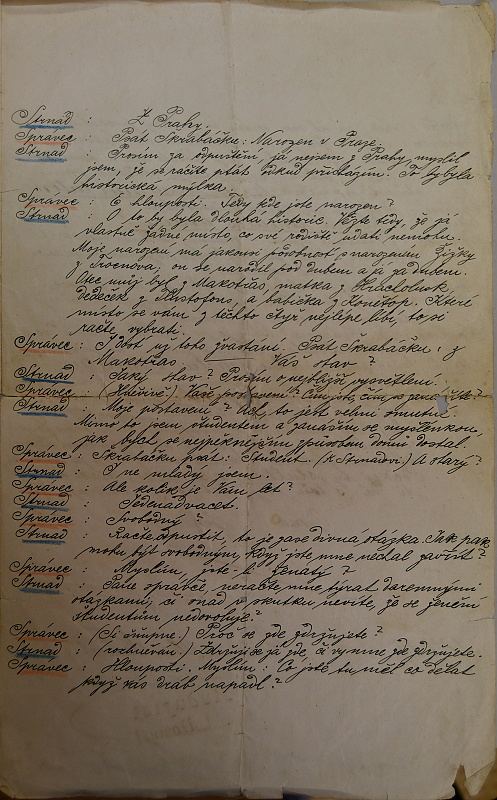 Strnad : Z Prahy.
Správec : Psát Škrabáčku: Narozen v Praze.
Strnad : Prosím za odpuštění, já nejsem z Prahy, myslil
jsem, že se ráčíte ptát odkud přicházím. To by byla
historická mýlka.
Správec : E hlouposti. Tedy kde jste narozen?
Strnad : O to by byla dlouhá historie. Vězte tedy, že já
vlastně žádné místo, co své rodiště udati nemohu.
Moje narození má jakousi podobnost s narozením Žižky
z Trocnova, on se narodil pod dubem a já za dubem.
Otec můj byl z Makotřas, matka z
dědeček z a babička z Které
místo se vám z těchto čtyř nejlépe líbí, to si
račte vybrati.
Správec : I dost už toho žvastání. Psát Škrabáčku: z
Makotřas. Váš stav?
Strnad : Jaký stav? Prosím o nejbližší vysvětlení.
Správec : (Křičivě.) Vaše postavení? Čím jste, čím se
Strnad : Moje postavení? Ach, to jest velmi smutné.
Mimo to jsem studentem a zanáším se myšlénkou,
jak bych se nejpěknějším způsobem domů dostal.
Správec : Škrabáčku psát: Student. (K Strnadovi.) A starý?
Strnad : I ne mladý jsem.
Správec : Ale kolik je Vám let?
Strnad : Jedenadvacet.
Správec : Svobodný?
Strnad : Račte odpustit, to je zase divná otázka. Jak pak
mohu být svobodným, když jste mne nechal zavřít?
Správec : Myslím, jste-li ženatý?
Strnad : Pane správče, neračte mne týrat daremnými
otázkami, či snad v skutku nevíte, že se ženění
studentům nedovoluje?
Správec : Proč se zde zdržujete?
Strnad : Zdržuji se já zde, či vy mne zde zdržujete.
Správec : Hlouposti. Myslím: Co jste tu měl co dělat
když vás dráb napadl?